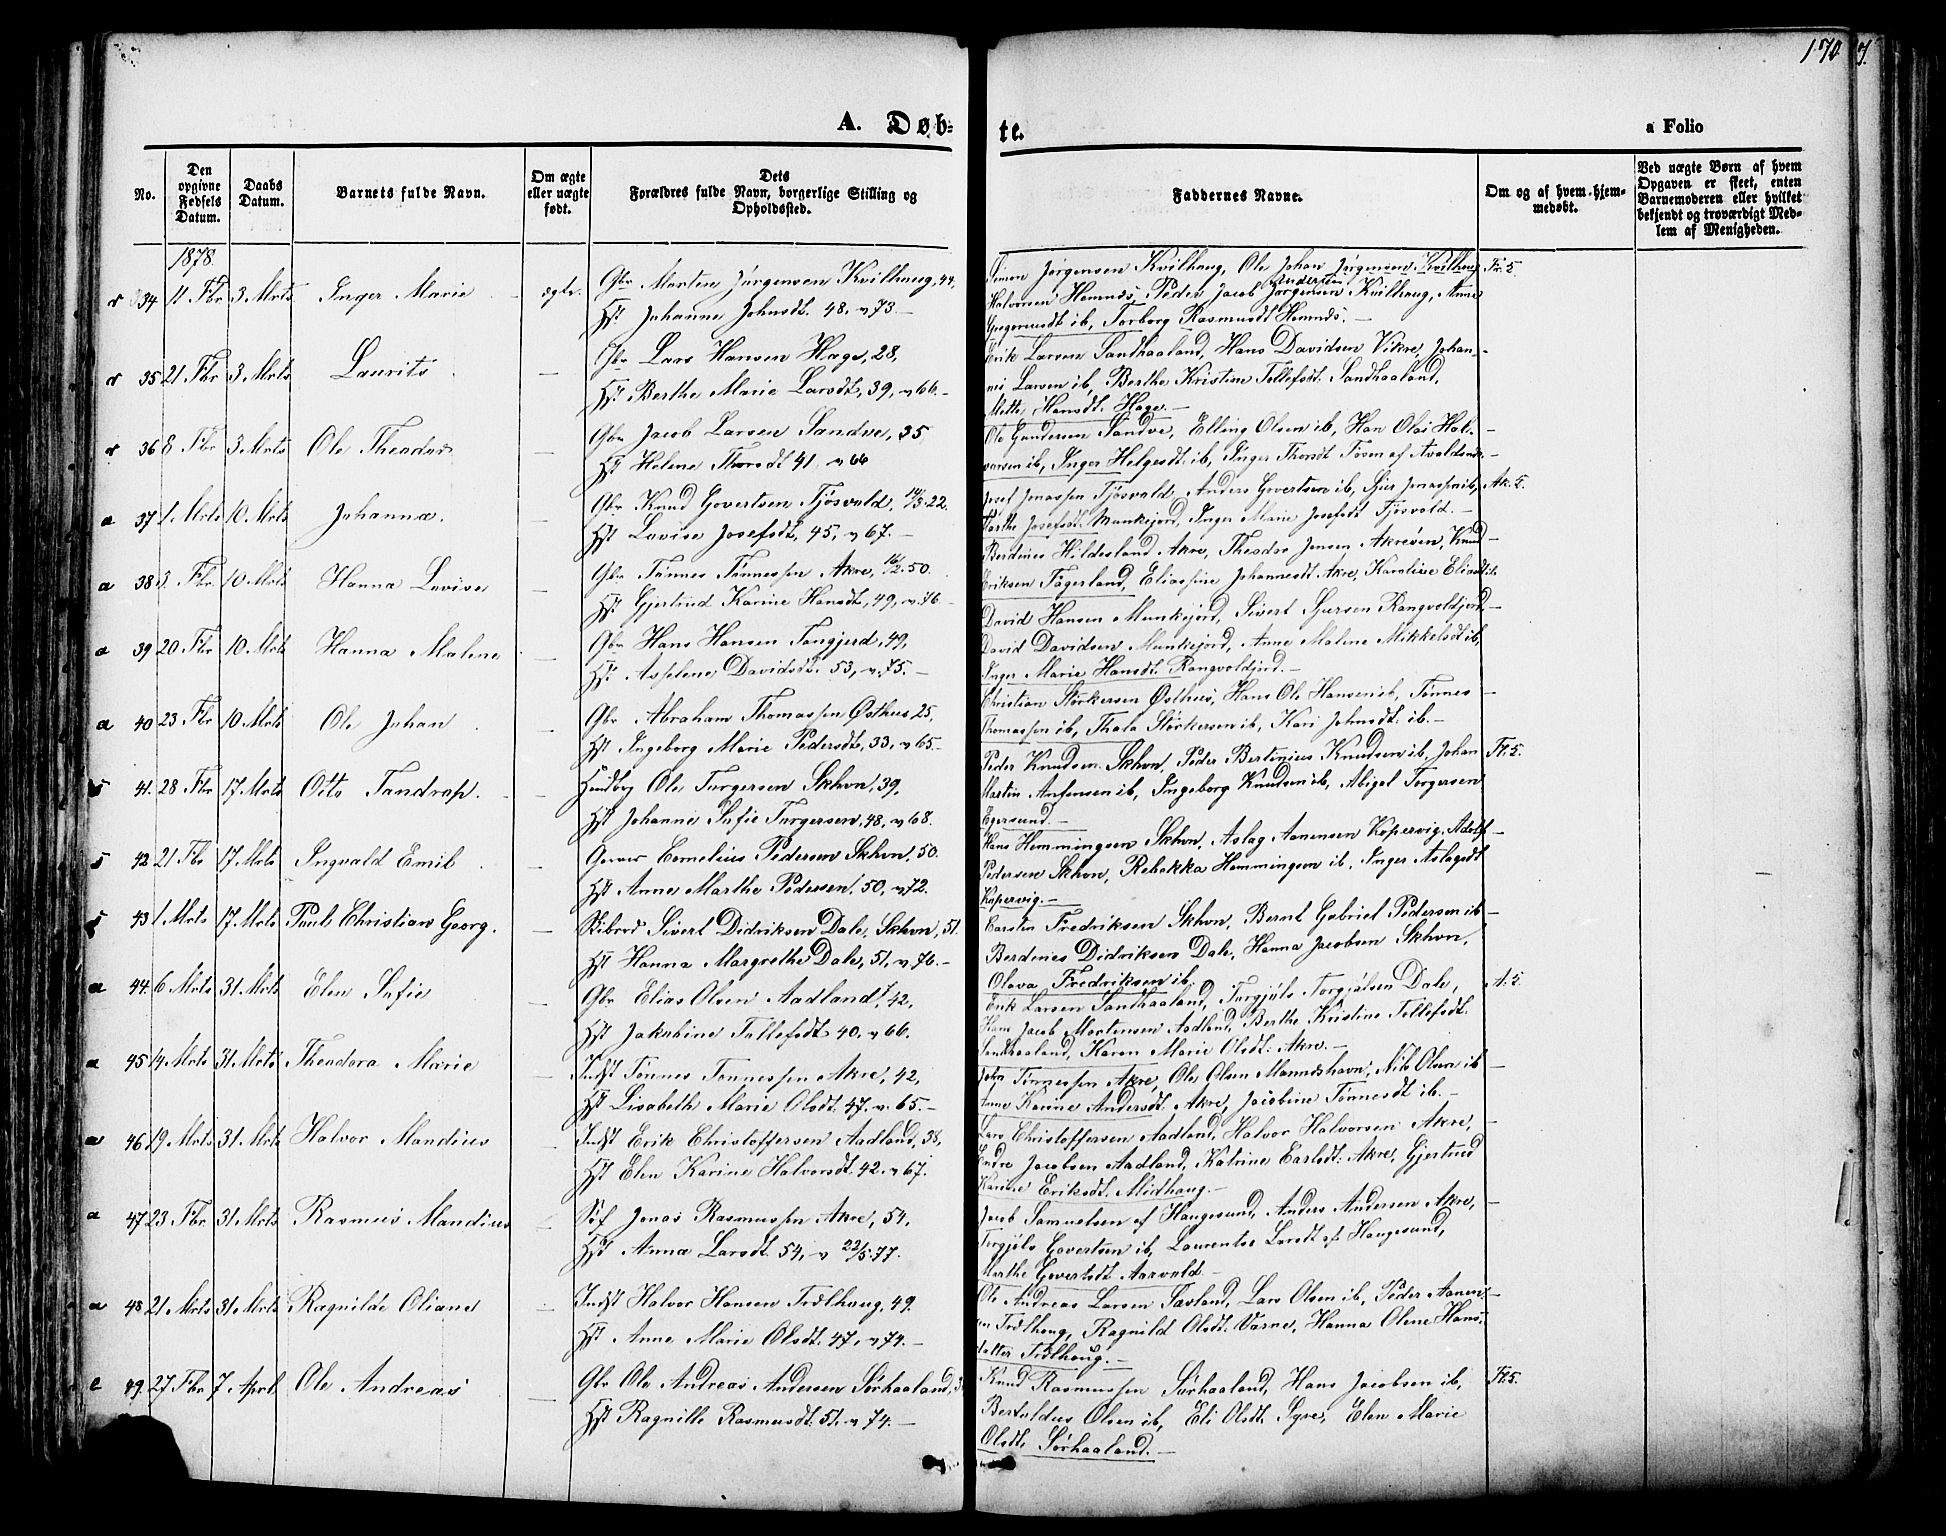 170
A. Døb-
te.
a Folio
No.
Den opgivne Fødsels Datum.
Daabs Datum.
Barnets fulde Navn.
Om ægte eller uægte født.
Dets Forældres fulde Navn, borgerlige Stilling og Opholdssted.
Faddernes Navne.
Om og af hvem hjemmedøbt.
Ved uægte Børn af hvem Opgaven er skeet, enten Barnemoderen eller hvilket bekjendt og troværdigt Medlem af Menigheden.
1878.
34 11 Fbr 3 Mrts Inger Marie ægte. Gbr Morten Jørgensen Kvilhaug, 44,
Hst Johanne Johnsdt. 48, v 73.
Simon Jørgensen Kvilhaug, Ole Johan Jørgensen Kvilhaug
Halvorsen Hemnes, Peder Jacob Jørgensen Kvilhaug, Anne
Gregoriusdt ib, Torborg Rasmusdt Hemnes.
35 21 Fbr 3 Mrts Laurits Gbr Lars Hansen Hage, 28,
Hst Berthe Marie Larsdt, 39, v 66.
Erik Larsen Sandhaaland, Hans Davidsen Vikre, Johan-
nes Larsen ib, Berthe Kristine Tollefsdt. Sandhaaland,
Mette Hansdt. Hage.
36 8 Fbr 3 Mrts Ole Theodor Gbr Jacob Larsen Sandve, 35
Hst Helene Thorsdt 41, v 66
Ole Gundersen Sandve, Elling Olsen ib, Han Olai Hal-
vorsen ib, Inger Helgesdt. ib, Inger Thorsdt
37 1 Mrts 10 Mrts Johanna. Gbr Knud Govertsen Tjösvold, 14/3.22.
Hst Lovise Josefsdt, 45, v 67.
Josef Jonassen Tjösvold, Anders Govertsen ib, Sjur Jonassen ib,
Marthe Josefsdt. Munkejord, Inger Marie Josefsdt Tjösvold.
38 5 Fbr 10 Mrts Hanna Lovise Gbr Tönnes Tönnessen Akre, 16/2.50.
Hst Gjertrud Karine Hansdt, 49, v 76.
Berdines Hildesland Akre, Theodor Jensen Akreøen, Knud
Eriksen Fagerland, Eliassine Johannesdt. Akre, Karoline Eliasdt ib
39 20 Fbr 10 Mrts Hanna Malene Gbr Hans Hansen Tangjerd, 49,
Hst Asselene Davidsdt. 53, v. 75.
David Hansen Munkejord, Sivert Sjursen Rangvoldjord,
David Davidsen Munkejord, Anne Malene Mikkelsdt ib,
Inger Marie Hansdt. Rangvoldjord.
40 23 Fbr 10 Mrts Ole Johan Gbr Abraham Thomassen Østhus 25,
Hst Ingeborg Marie Pedersdt, 33, v 65.
Christian Störkersen Østhus, Hans Ole Hansen ib, Tönnes
Thomassen ib, Thala Störkersen ib, Kari Johnsdt. ib.
41. 28 Fbr 17 Mrts Otto Tandrap. Ole Torgersen Skhvn, 39,
Hst Johanne Sofie Torgersen, 48, v 68.
Peder Knudsen Skhvn, Peder Bertinius Knudsen ib, Johan
Martin Anfensen ib, Ingeborg Knudsen ib, Abigel Torgersen
Egersund.
42 21 Fbr 17 Mrts Ingvald Emil Cornelius Pedersen Skhvn, 50.
Hst Anne Marthe Pedersen, 50, v 72.
Hans Hemmingsen Skhvn, Aslag Aanensen Kopervig, Adolf
Pedersen Skhvn, Rebekka Hemmingsen ib, Inger Aslagsdt
Kopervig.
43 1 Mrts 17 Mrts Paul Christian Georg. Sivert Didriksen Dale, Skhvn, 51.
Hst Hanna Margrethe Dale, 51, v 76.
Carstin Fredriksen Skhvn, Bernt Gabriel Pedersen ib
Berdines Didriksen Dale, Hanna Jacobsen Skhvn,
Olava Fredriksen ib.
44. 6 Mrts 31 Mrts Elen Sofie Gbr Elias Olsen Aadland, 42,
Hst Jakobine Tollefsdt 40, v 66.
Erik Larsen Sandhaaland, Torgjöls Torgjölsen Dale,
Hans Jacob Mortensen Aadland, Berthe Kristine Tollefsdt.
Sandhaaland, Karen Marie Olsdt. Akre.
45 14 Mrts 31 Mrts Theodora Marie Indst Tönnes Tönnessen Akre, 42,
Hst Lisabeth Marie Olsdt. 47. v. 65.
John Tönnessen Akre, Ole Olsen Manneshavn, Nils Olsen ib
Anne Karine Andersdt. Akre, Jacobine Tönnesdt ib.
46 19 Mrts 31 Mrts Halvor Mandius Indst Erik Christoffersen Aadland, 38,
Hst Elen Karine Halvorsdt. 42. v 67.
Lars Christoffersen Aadland, Halvor Halvorsen Akre,
Endre Jacobsen Aadland, Katrine Carlsdt. Akre, Gjertrud
Karine Eriksdt. Midhaug.
47 23 Fbr 31 Mrts Rasmus Mandius Söf Jonas Rasmussen Akre, 54,
Hst Anna Larsdt. 54, v 22/5.77.
Jacob Samuelsen af Haugesund, Anders Andersen Akre,
Torgjöls Govertsen ib, Larsdt af Haugesund,
Marthe Govertsdt Aarvold.
48 21 Mrts 31 Mrts Ragnilde Oliane Indst Halvor Hansen Trölhaug, 49.
Hst Anne Marie Olsdt. 47, v 74.
Ole Andreas Larsen Sævland, Lars Olsen ib, Peder Aanen-
sen Trölhaug, Ragnild Olsdt. Varne, Hanna Olene Hans-
datter Trölhaug.
49. 27 Fbr 7 April Ole Andreas Gbr Ole Andreas Andersen Sörhaaland,
Hst Ragnille Rasmusdt. 51. v 74.
Knud Rasmussen Sörhaaland, Hans Jacobsen ib,
Bertoldus Olsen ib, Eli Olsdt. Syre, Elen Marie
Olsdt. Sörhaaland.